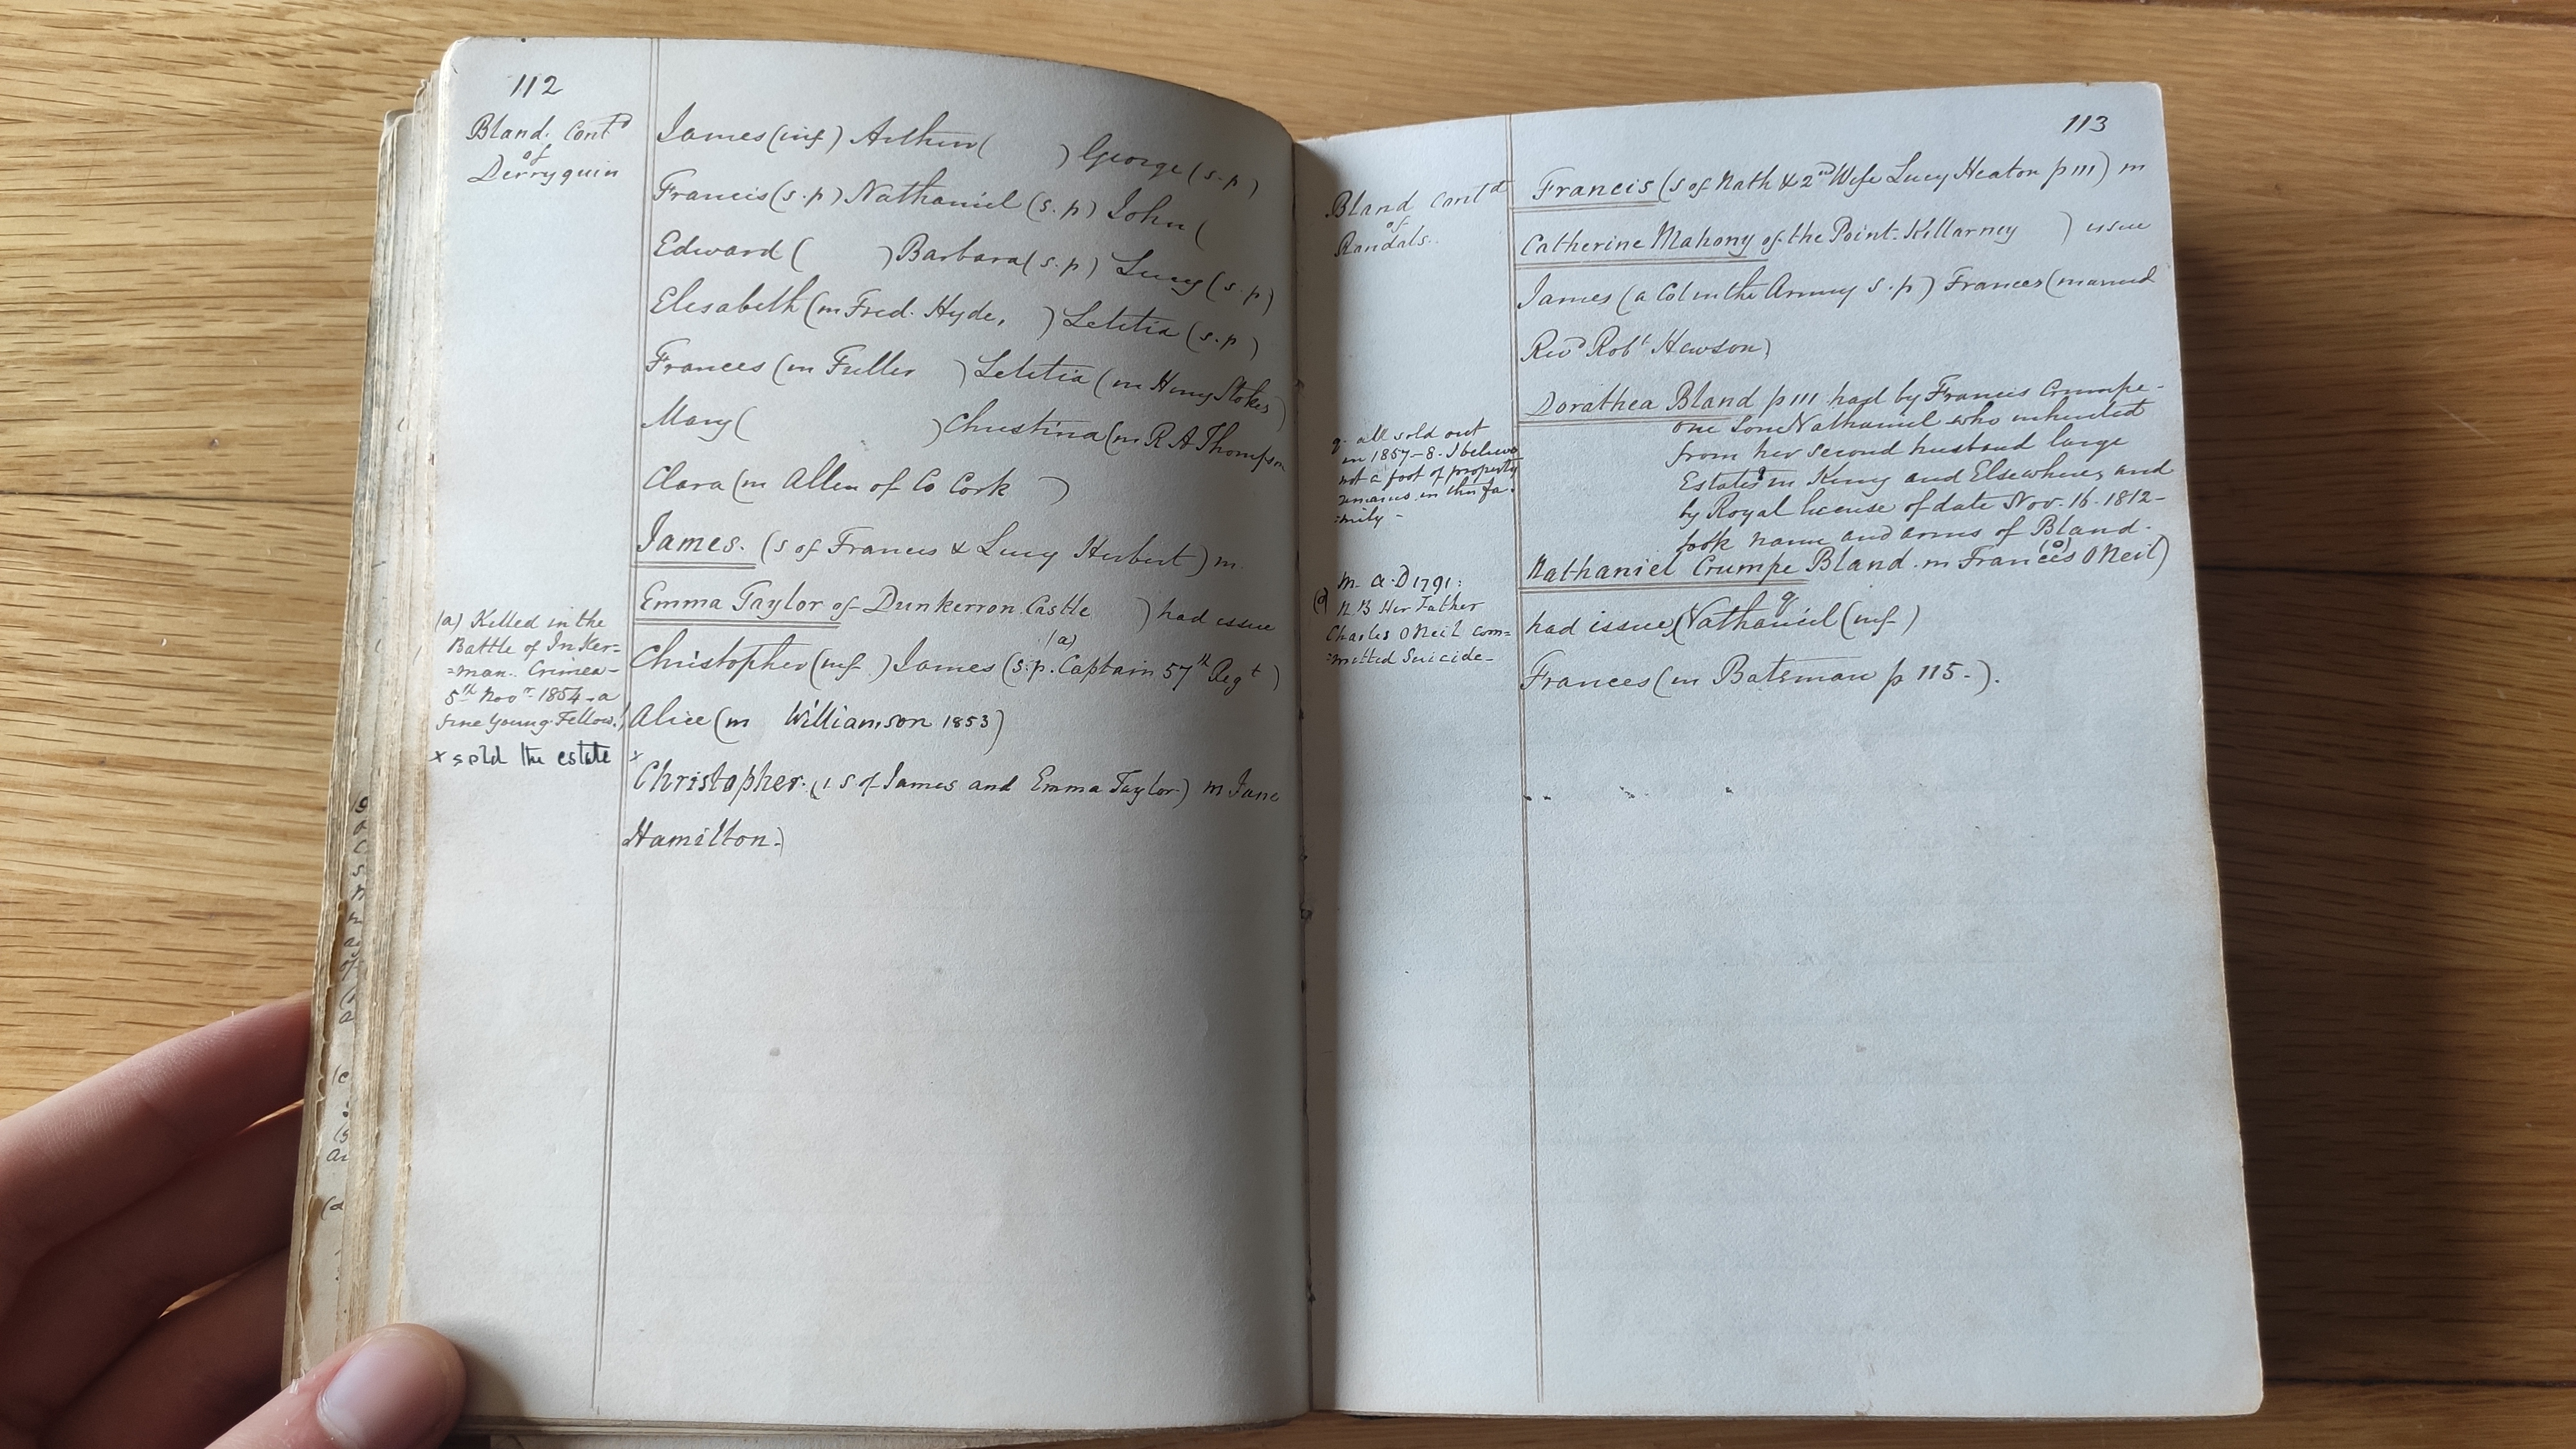 112
Bland. Contd
of
Derryquin
James (inf) Arthur (          ) George (s.p)
Francis (s.p) Nathaniel (s.p) John (
Edward (          ) Barbara (s.p) Lucy (s.p)
Elisabeth (m Fred. Hyde,     ) Letitia (s.p)
Frances (m Fuller     ) Letitia (m Henry Stokes)
Mary (          ) Christina (m R A Thompson
Clara (m Allen of Co Cork     )
James. (s of Francis & Lucy Herbert) m.
Emma Taylor of Dunkerron Castle     ) had issue
(a)
Christopher (inf.) James (s.p. Captain 57th Regt)
Alice (m     Williamson 1853)
x Christopher. (1 s of James and Emma Taylor) m Jane
Hamilton.)
(a) Killed in the
Battle of Inker=
=man. Crimea-
5th Novr 1854 - a
fine young Fellow.!
x sold the estate
113
Bland Contd
of
Randals.
Francis (s of Nath & 2nd Wife Lucy Heaton p 111) m
Catherine Mahony of the Point. Killarney     ) issue
James (a Col in the Army s.p) Frances (married
Revd Robt Hewson)
Dorathea Bland p 111 had by Francis Crumpe-
one Son Nathaniel who inherited
from her second husband large
Estates in Kerry and Elsewhere, and
by Royal license of date Nov. 16. 1812-
took name and arms of Bland.
(o)
Nathaniel Crumpe Bland. m Frances O Neil)
q
had issue, (Nathaniel (inf)
Frances (m Bateman p 115-).
q. all sold out
in 1857-8. I believe
not a foot of property
remains in this fa-
=mily -
m. A.D 1791:
(o) N.B Her Father
Charles O Neil com=
=mitted Suicide-